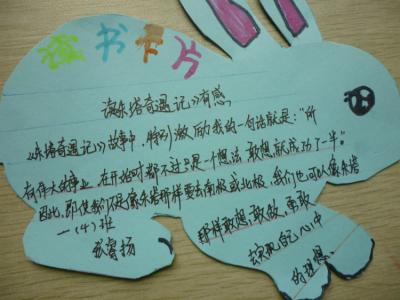 读书卡片
《海朵塔奇遇记》有感
《朵塔奇遇记》故事中，特别激励我的一句话就是："所
有伟大的事业，在开始时都不过只是一个想法，敢想就成功了一半。"
因此，即使我们不是像朵塔那样要去南极或北极，我们也可以像朵塔
那样敢想敢做，勇敢
实现自己心中
的理想。
一（4）班
武睿扬